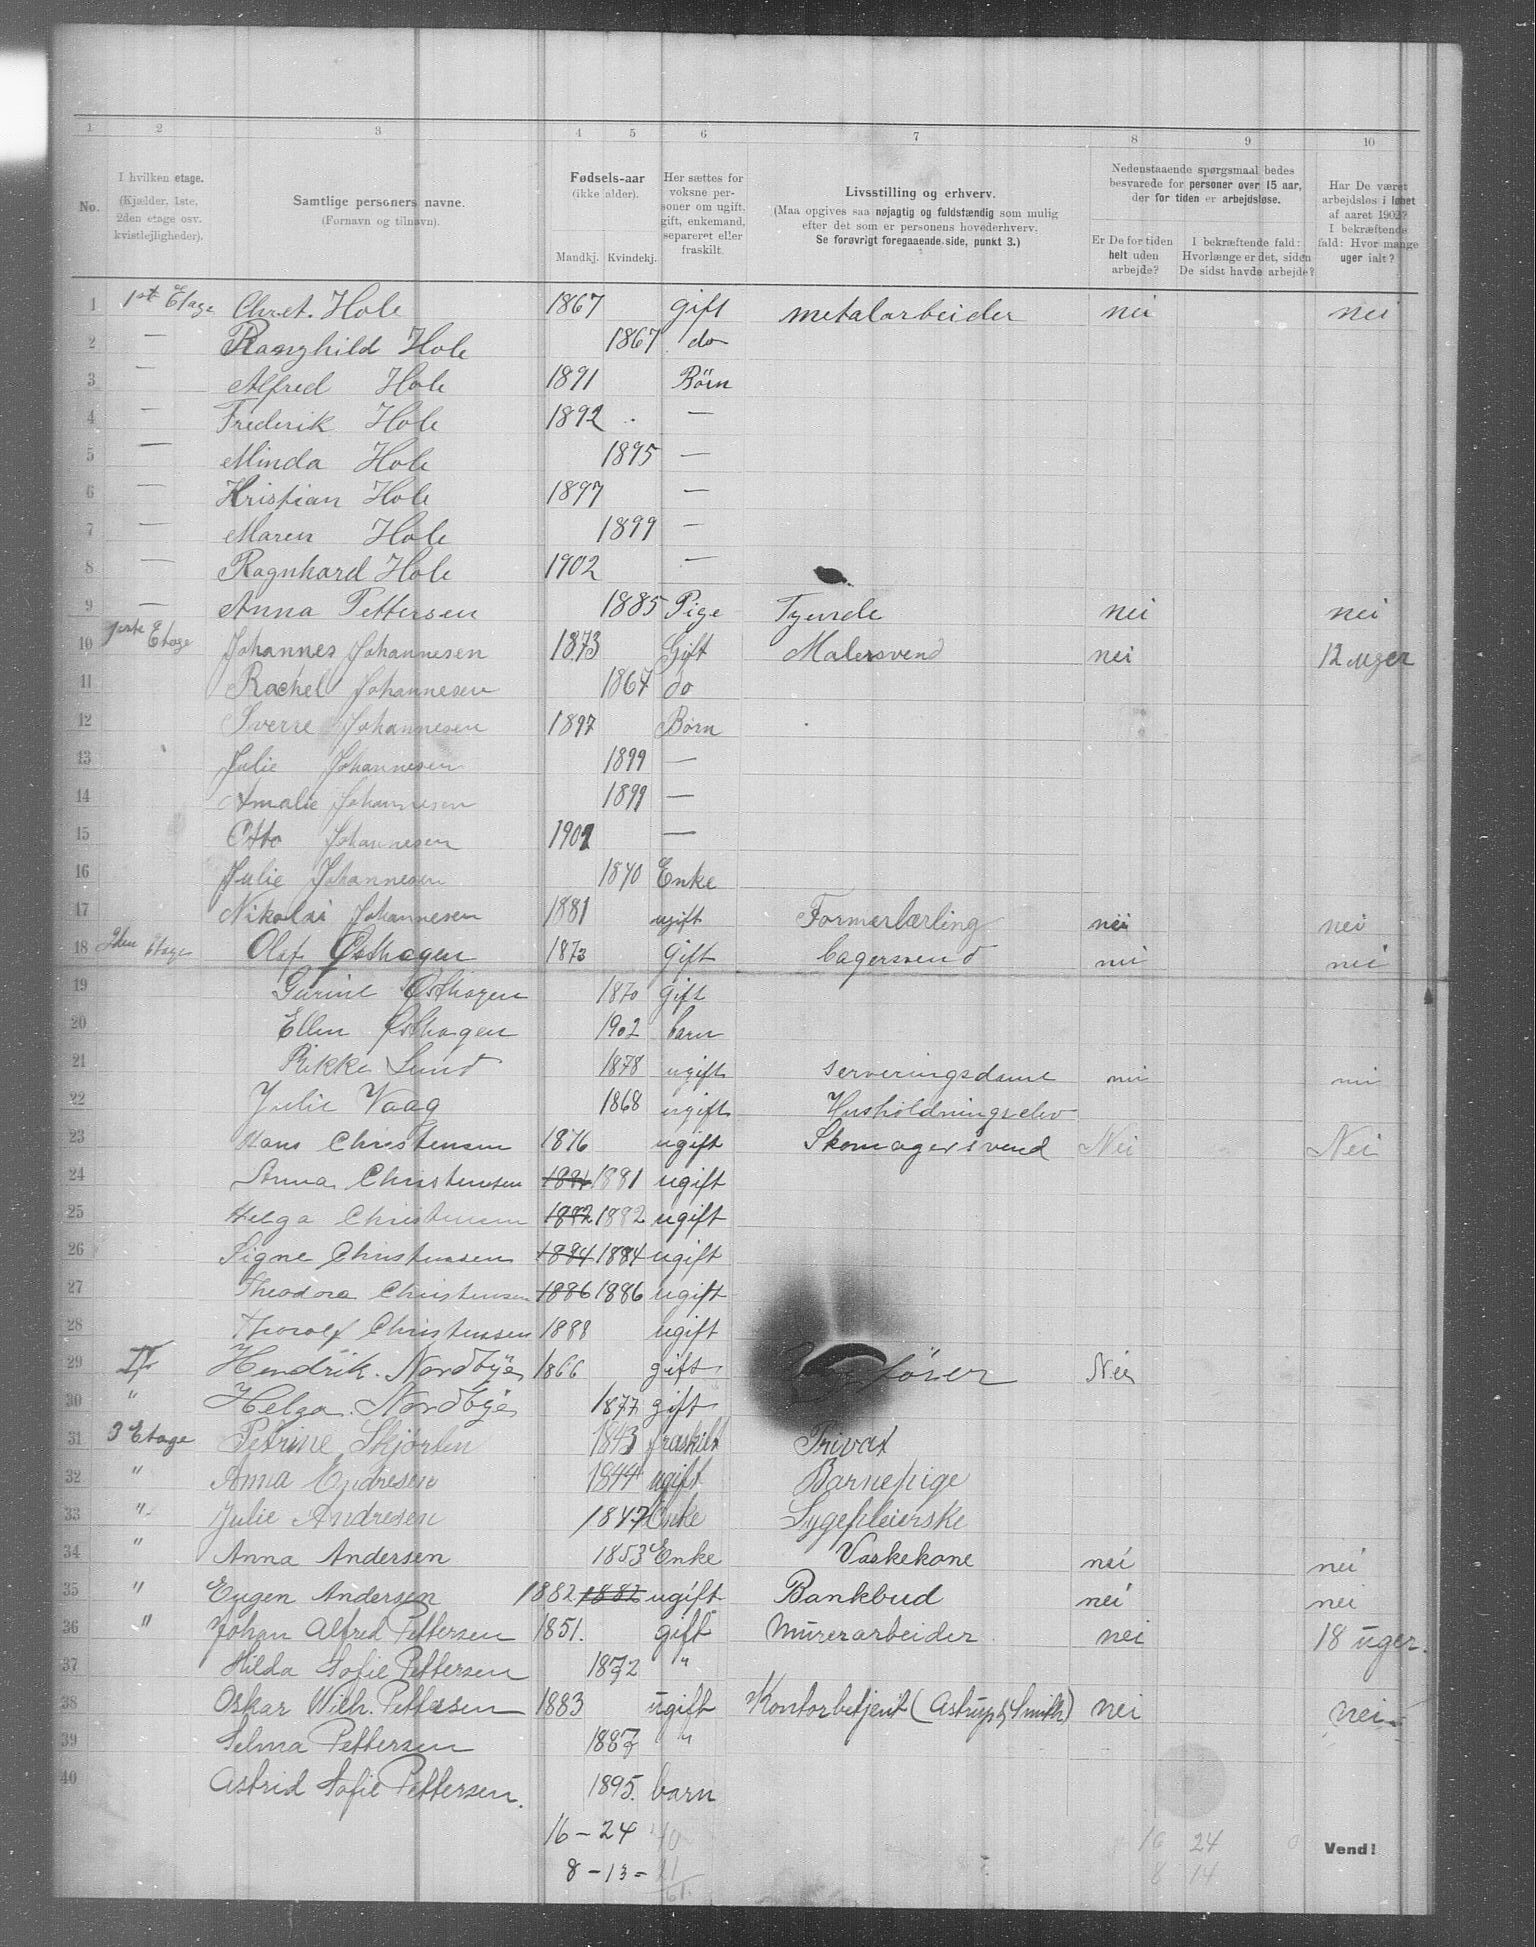 1 2 3 4 5 6 7 8 9 10
No. I hvilken etage. (Kjælder, 1ste, 2den etage osv. kvistlejligheder). Samtlige personers navne. (Fornavn og tilnavn). Fødsels-aar (ikke alder). Mandkj. Kvindekj. Her sættes for voksne personer om ugift, gift, enkemand, separeret eller fraskilt. Livsstilling og erhverv. (Maa opgives saa nøjagtig og fuldstændig som mulig efter det som er personens hovederhverv. Se forøvrigt foregaaende side, punkt 3.) Nedenstaaende spørgsmaal bedes besvarede for personer over 15 aar, der for tiden er arbejdsløse. Er De for tiden helt uden arbejde? I bekræftende fald: Hvorlænge er det, siden De sidst havde arbejde? Har De været arbejdsløs i løbet af aaret 1902? I bekræftende fald: Hvor mange uger ialt?
1 1st Etage Chret. Hole 1867 gift metalarbeider nei nei
2 — Ranghild Hole 1867 do
3 — Alfred Hole 1891 Börn
4 — Frederik Hole 1892 —
5 — Minda Hole 1895 —
6 — Kristian Hole 1897 —
7 — Maren Hole 1899 —
8 — Ragnhard Hole 1902 —
9 — Anna Pettersen 1885 Pige Tyende nei nei
10 1ste Etage Johannes Johannesen 1873 Gift Malersvend nei 12 uger
11 Rachel Johannesen 1867 do
12 Sverre Johannesen 1897 Børn
13 Julie Johannesen 1899 —
14 Amalie Johannesen 1899 —
15 Otto Johannesen 1902 —
16 Julie Johannesen 1840 Enke
17 Nikolai Johannesen 1881 ugift Formerlærling nei nei
18 2den Etage Olaf Østhagen 1873 Gift bagersvend nei nei
19 Gurine Østhagen 1870 gift
20 Ellen Østhagen 1902 barn
21 Rikke Lund 1878 ugift serveringsdame nei nei
22 Julie Vaag 1868 ugift Husholdningselev
23 Hans Christensen 1876 ugift Skomagersvend Nei Nei
24 Anna Christensen 1881 1881 ugift
25 Helga Christensen 1882 1882 ugift
26 Signe Christensen 1884 1884 ugift
27 Theodora Christensen 1886 1886 ugift
28 Thorolf Christensen 1888 ugift
29 II Hendrik. Nordbye 1866 gift Nei
30 " Helga. Nordbye 1877 gift
31 3 Etage Petrine Skjorten 1843 fraskilt Privat
32 " Anna Endresen 1844 ugift Barnepige
33 " Julie Andresen 1847 Enke Sygepleierske
34 " Anna Andersen 1853 Enke Vaskekone nei nei
35 " Eugen Andersen 1882 1882 ugift Bankbud nei nei
36 " Johan Alfred Pettersen 1851. gift Murerarbeider nei 18 uger.
37 Hilda Sofie Pettersen 1872 "
38 Oskar Wilh. Pettersen 1883 ugift Kontorbetjent (Astrup & Smith) nei nei
39 Selma Pettersen 1887 "
40 Astrid Sofie Pettersen. 1895. barn
16 – 24 40 16 24 0 Vend!
8 – 13 = 21 8 14
61.